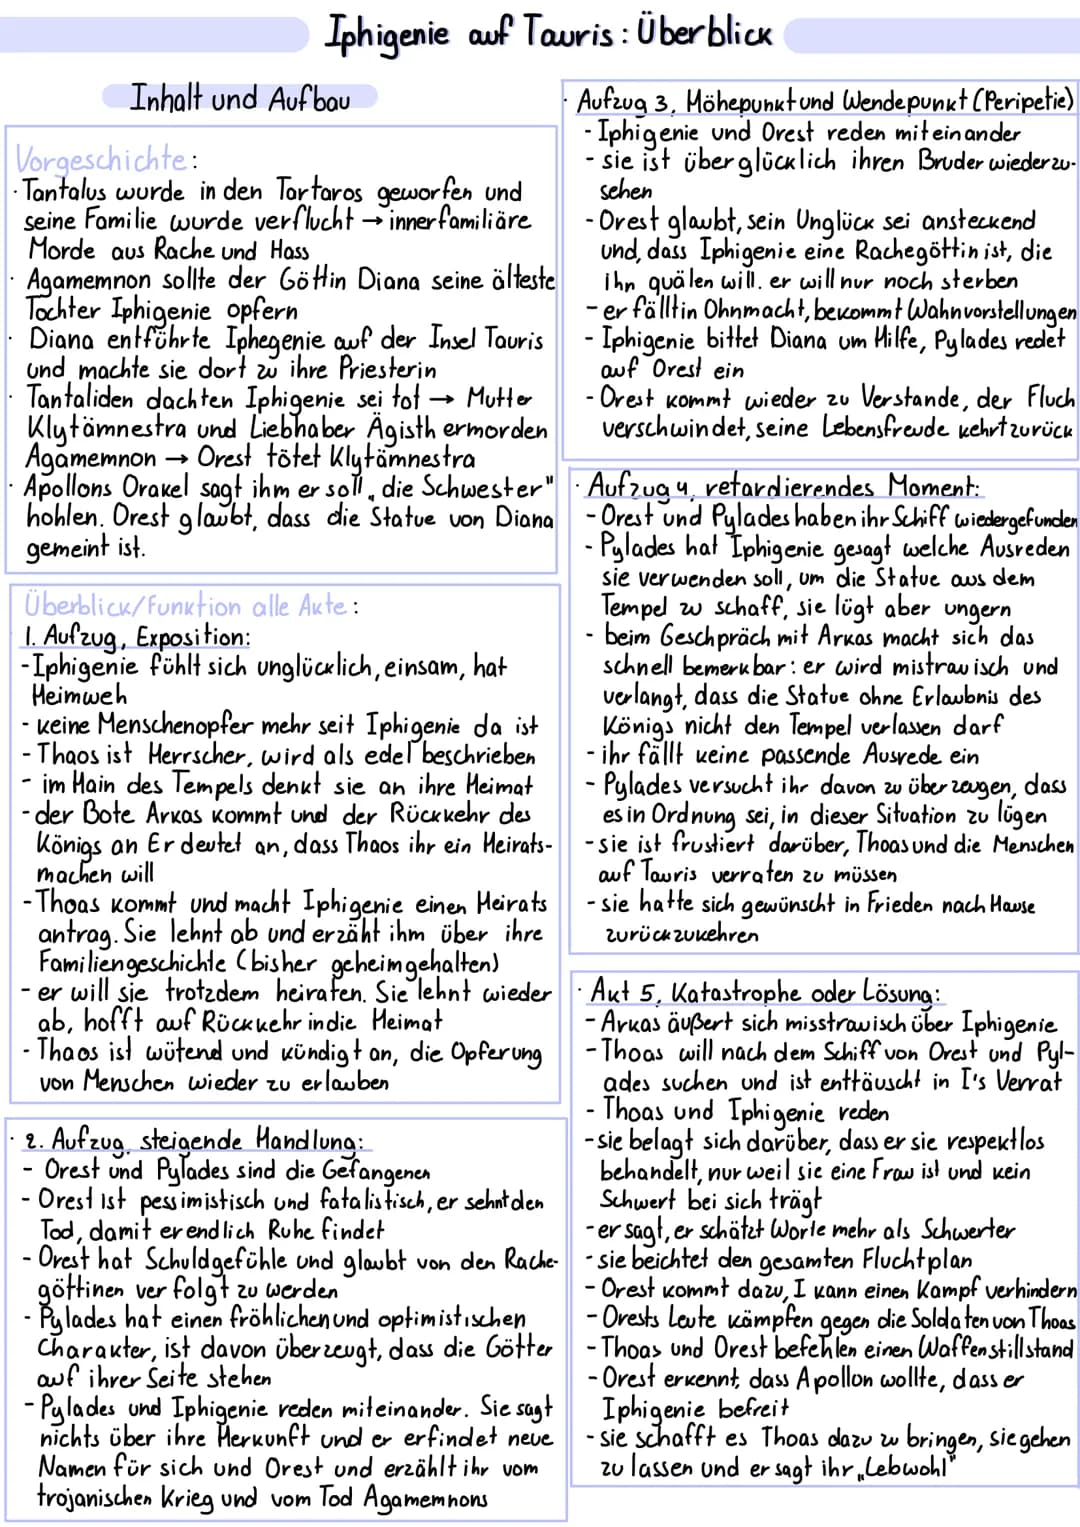 Iphigenie auf Tauris: Überblick
Inhalt und Aufbau
Vorgeschichte:
· Tantalus wurde in den Tartaros geworfen und
seine Familie wurde verflucht → innerfamiliäre
Morde aus Rache und Hass
· Agamemnon sollte der Göttin Diana seine älteste
Tochter Iphigenie opfern
· Diana entführte Iphegenie auf der Insel Tauris
und machte sie dort zu ihre Priesterin
· Tantaliden dachten Iphigenie sei tot → Mutter
Klytämnestra und Liebhaber Ägisth ermorden
Agamemnon → Orest tötet Klytämnestra
· Apollons Orakel sagt ihm er soll „die Schwester"
hohlen. Orest glaubt, dass die Statue von Diana
gemeint ist.
Überblick/Funktion alle Akte:
1. Aufzug, Exposition:
- Iphigenie fühlt sich unglücklich, einsam, hat
Heimweh
- keine Menschenopfer mehr seit Iphigenie da ist
- Thaos ist Herrscher, wird als edel beschrieben
- im Hain des Tempels denkt sie an ihre Heimat
- der Bote Arkas kommt und der Rückkehr des
Königs an Er deutet an, dass Thaos ihr ein Heirats-
machen will
- Thoas kommt und macht Iphigenie einen Heirats
antrag. Sie lehnt ab und erzäht ihm über ihre
Familiengeschichte (bisher geheimgehalten)
- er will sie trotzdem heiraten. Sie lehnt wieder
ab, hofft auf Rückkehr in die Heimat
- Thaos ist wütend und kündigt an, die Opferung
von Menschen wieder zu erlauben
· 2. Aufzug, steigende Handlung:
- Orest und Pylades sind die Gefangenen
- Orest ist pessimistisch und fatalistisch, er sehnt den
Tod, damit er endlich Ruhe findet
- Orest hat Schuldgefühle und glaubt von den Rache-
göttinen verfolgt zu werden
- Pylades hat einen fröhlichen und optimistischen
Charakter, ist davon überzeugt, dass die Götter
auf ihrer Seite stehen
- Pylades und Iphigenie reden miteinander. Sie sagt
nichts über ihre Herkunft und er erfindet neue
Namen für sich und Orest und erzählt ihr vom
trojanischen Krieg und vom Tod Agamemnons
· Aufzug 3, Höhepunkt und Wendepunkt (Peripetie)
- Iphigenie und Orest reden miteinander
- sie ist überglücklich ihren Bruder wiederzu-
sehen
- Orest glaubt, sein Unglück sei ansteckend
und, dass Iphigenie eine Rachegöttin ist, die
ihn quälen will. er will nur noch sterben
- er fällt in Ohnmacht, bekommt Wahnvorstellungen
- Iphigenie bittet Diana um Hilfe, Pylades redet
auf Orest ein
- Orest kommt wieder zu Verstande, der Fluch
verschwindet, seine Lebensfreude kehrt zurück
· Aufzug 4, retardierendes Moment:
- Orest und Pylades haben ihr Schiff wiedergefunden
- Pylades hat Iphigenie gesagt welche Ausreden
sie verwenden soll, um die Statue aus dem
Tempel zu schaff, sie lügt aber ungern
- beim Geschpräch mit Arkas macht sich das
schnell bemerkbar: er wird mistrauisch und
verlangt, dass die Statue ohne Erlaubnis des
Königs nicht den Tempel verlassen darf
- ihr fällt keine passende Ausrede ein
- Pylades versucht ihr davon zu überzeugen, dass
es in Ordnung sei, in dieser Situation zu lügen
- sie ist frustiert darüber, Thoas und die Menschen
auf Tauris verraten zu müssen
- sie hatte sich gewünscht in Frieden nach Hause
zurückzukehren
· Akt 5, Katastrophe oder Lösung:
- Arkas äußert sich misstrauisch über Iphigenie
- Thoas will nach dem Schiff von Orest und Pyl-
ades suchen und ist enttäuscht in I's Verrat
- Thoas und Iphigenie reden
- sie belagt sich darüber, dass er sie respektlos
behandelt, nur weil sie eine Frau ist und kein
Schwert bei sich trägt
- er sagt, er schätzt Worte mehr als Schwerter
- sie beichtet den gesamten Fluchtplan
- Orest kommt dazu, I kann einen Kampf verhindern
- Orests Leute kämpfen gegen die Soldaten von Thoas
- Thoas und Orest befehlen einen Waffenstillstand
- Orest erkennt, dass Apollon wollte, dass er
Iphigenie befreit
- sie schafft es Thoas dazu zu bringen, sie gehen
zu lassen und er sagt ihr „Lebwohl"